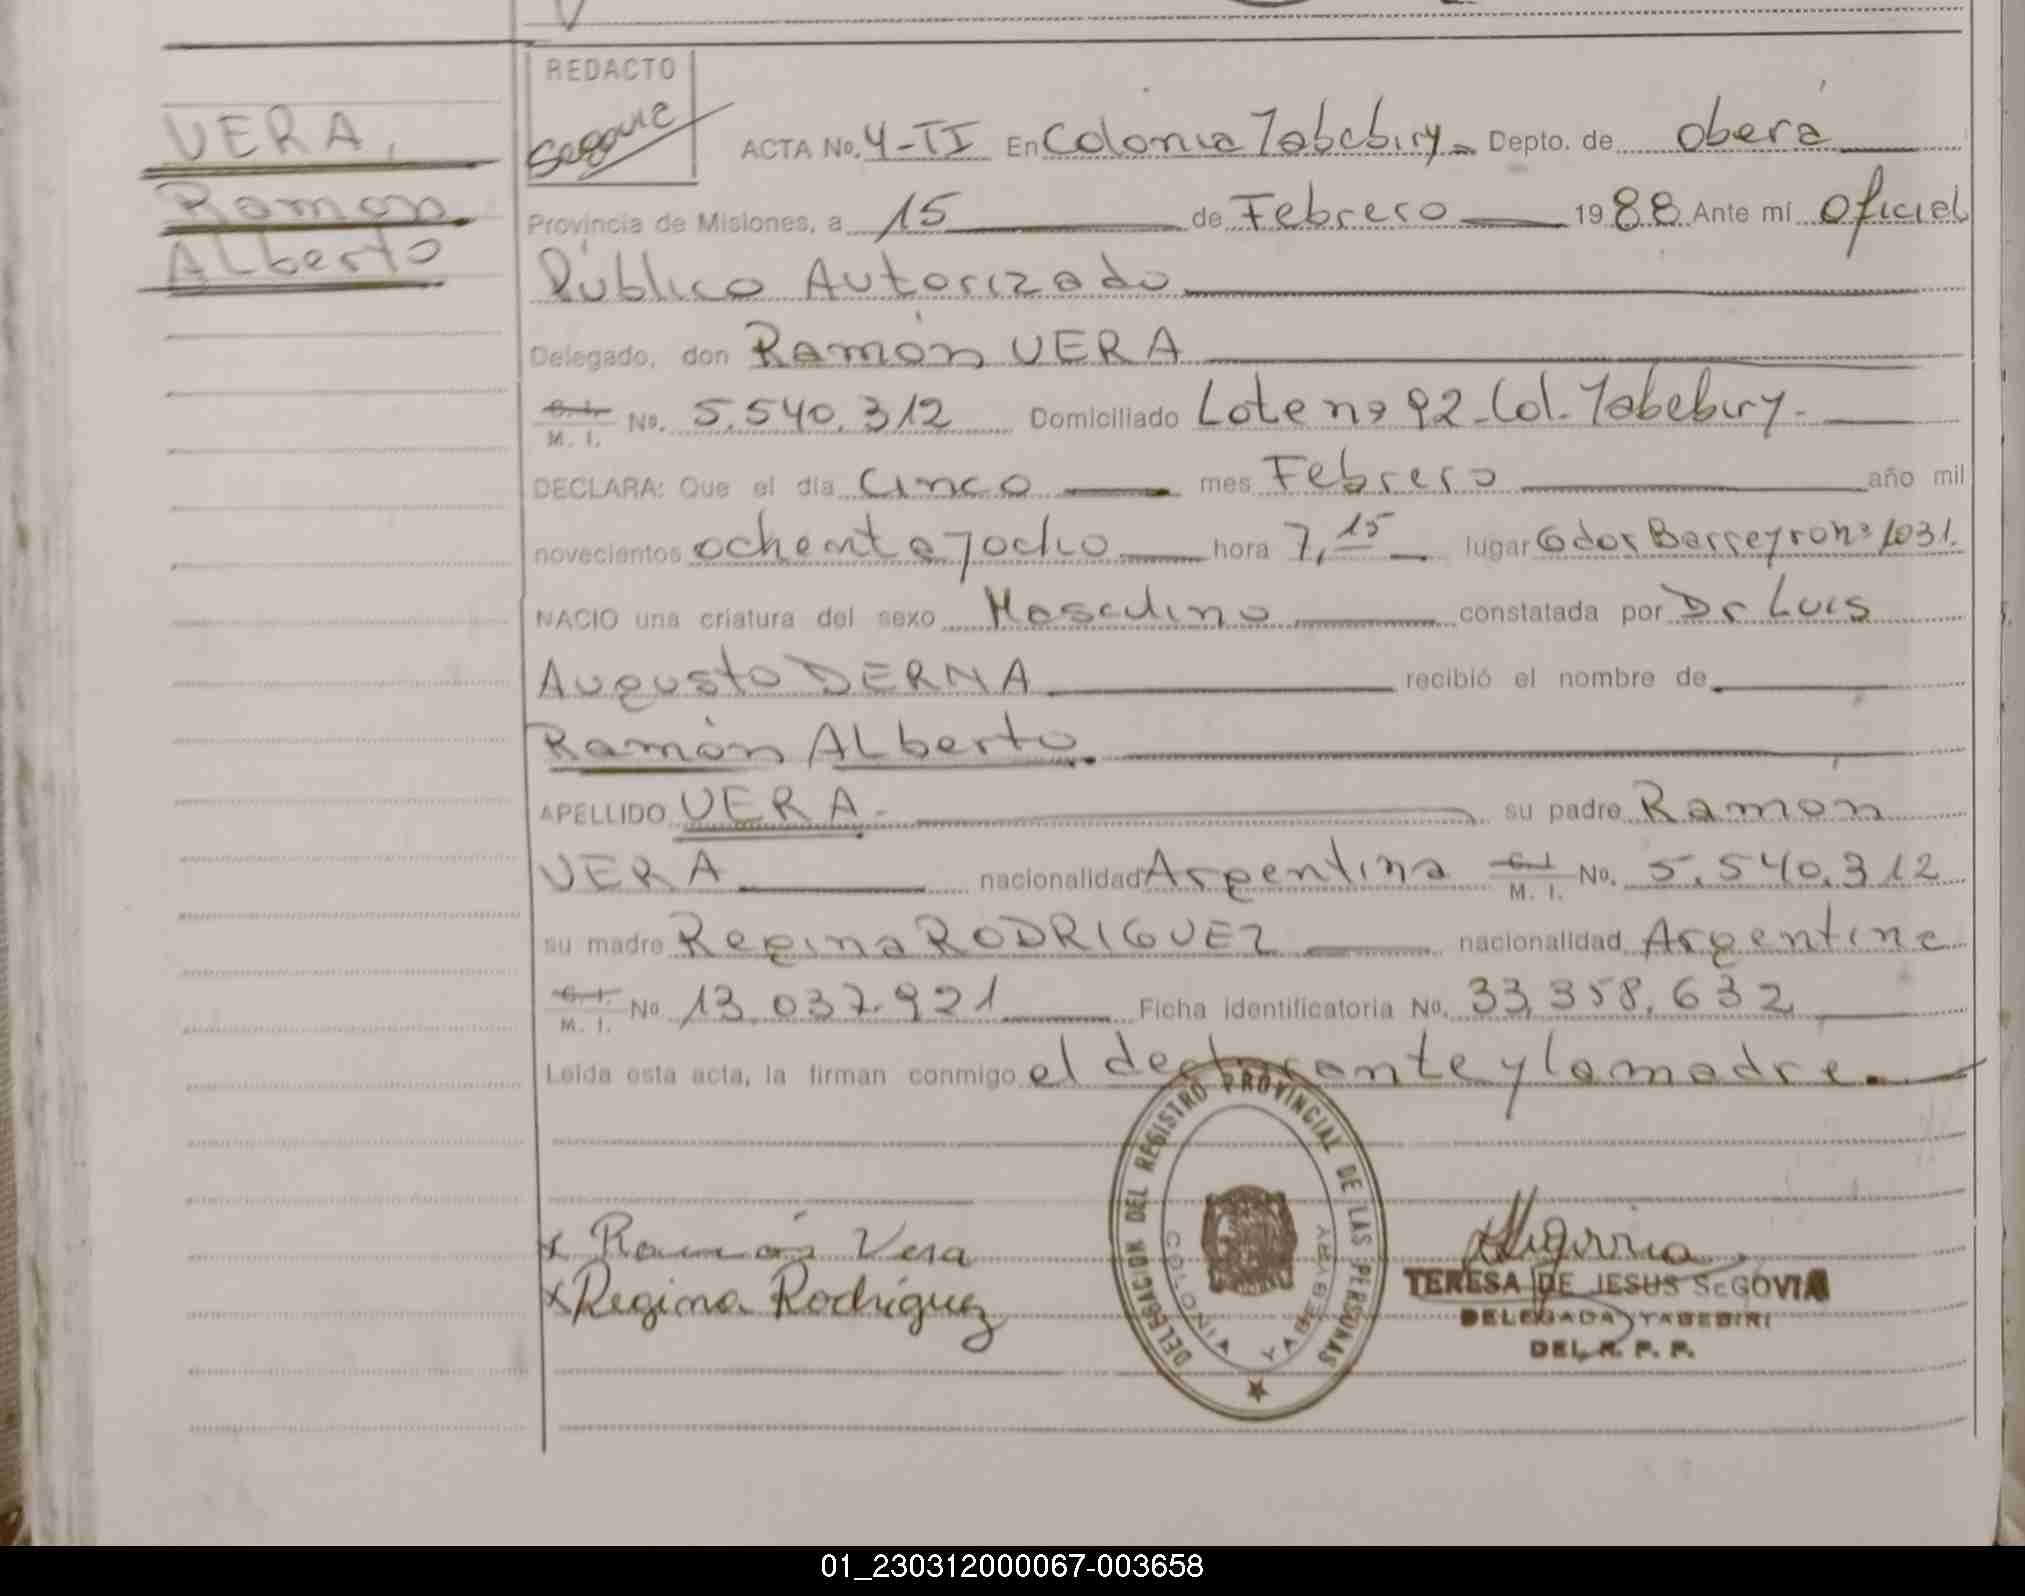 VERA,
Ramon
Alberto
REDACTO
ACTA No. 4-II En Colonia Yabebiry Depto. de Oberá
Provincia de Misiones, a 15 de Febrero 1988 Ante mí Oficial
Público Autorizado
Delegado, don Ramón VERA
C. I. M. I. No. 5.540.312 Domiciliado Lote nº 92-Col. Yabebiry-
DECLARA: Que el día cinco mes Febrero año mil
novecientos ochenta y ocho hora 7,15 lugar Barreyro nº 1031.
NACIO una criatura del sexo Masculino constatada por Dr Luis
Augusto DERNA recibió el nombre de
Ramón ALberto.
APELLIDO VERA- su padre Ramon
VERA nacionalidad Argentina C. I. M. I. No. 5.540.312
su madre Regina RODRIGUEZ nacionalidad Argentina
C. I. M. I. No 13.037.921 Ficha identificatoria No. 33.358.632
Leída esta acta, la firman conmigo el declarante y la madre.
x Ramón Vera
x Regina Rodriguez
DELEGACION DEL REGISTRO PROVINCIAL DE LAS PERSONAS
COLONIA YABEBIRY
TERESA DE JESUS SEGOVIA
DELEGADA YABEBIRI
DEL R. P. P.
01_230312000067-003658